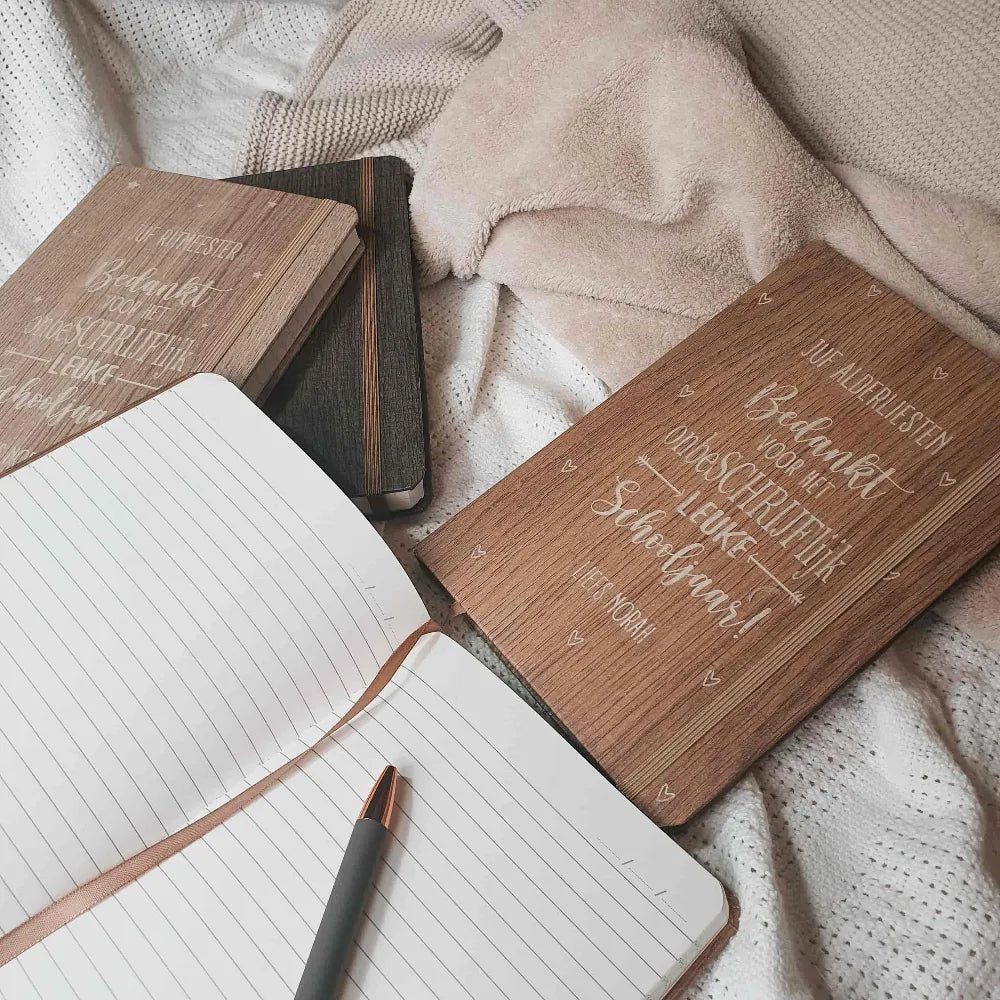 JUF RITMEESTER
Bedankt
VOOR HET
onbeSCHRIJFlijk
LEUKE
Schooljaa
JUF ALDERLIESTEN
Bedankt
VOOR HET
onbeSCHRIJFlijk
LEUKE
Schooljaar!
LIEFS NORAH